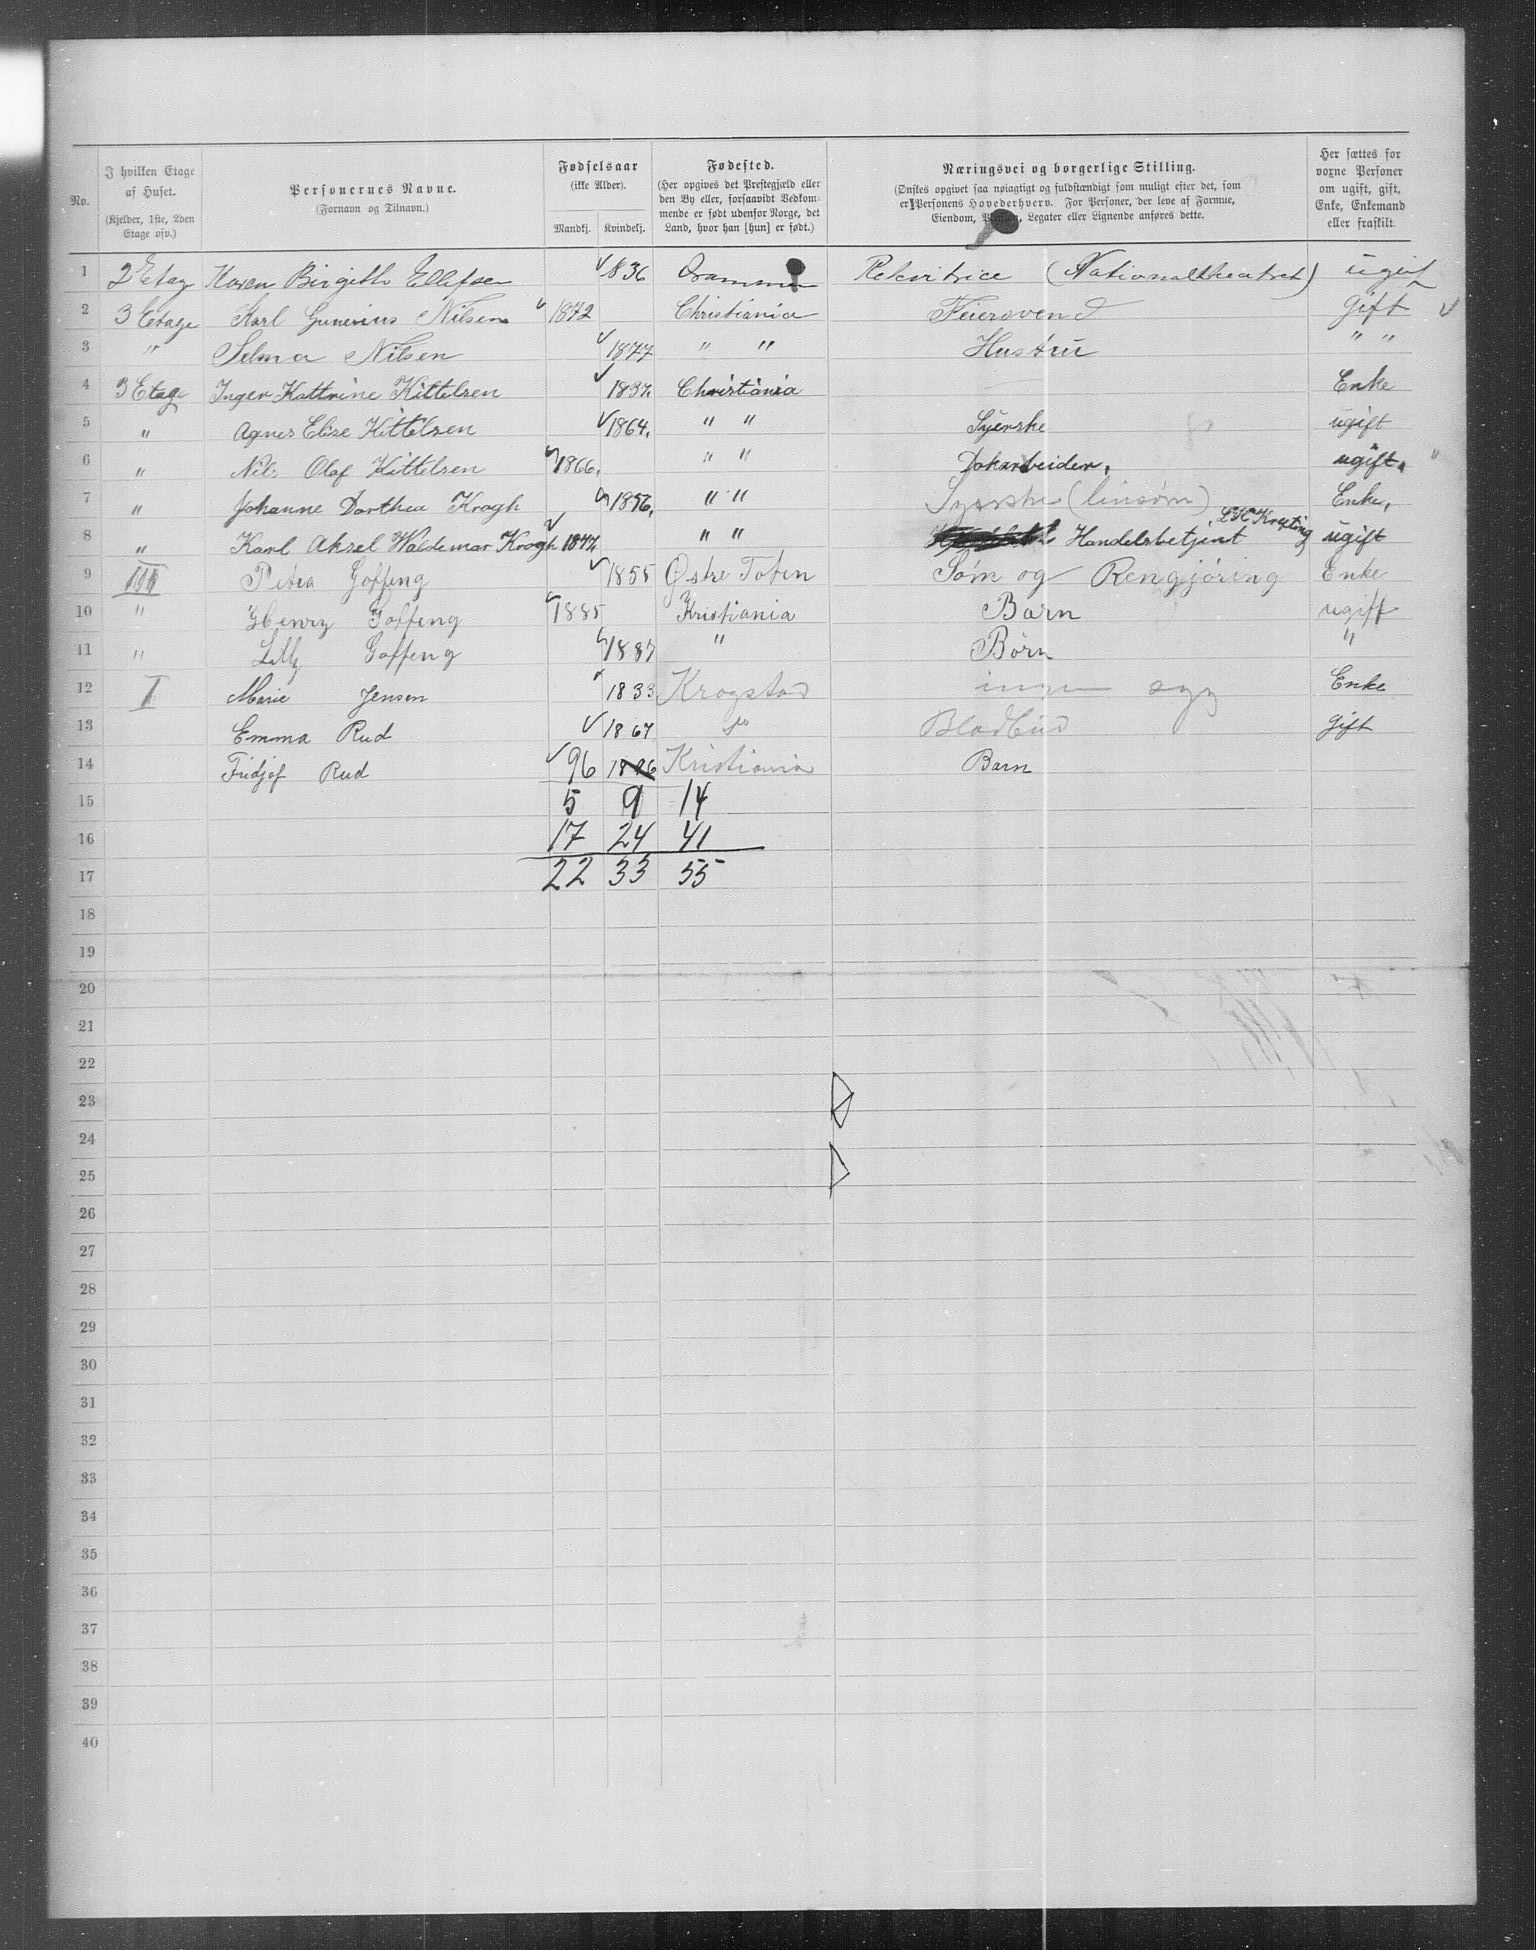 No.
I hvilken Etage af Huset. (Kjelder, 1ste, 2den Etage osv.)
Personernes Navne. (Fornavn og Tilnavn.)
Fødselsaar (ikke Alder). Mandkj. Kvindekj.
Fødested. (Her opgives det Prestegjæld eller den By eller, forsaavidt Vedkommende er født udenfor Norge, det Land, hvor han [hun] er født.)
Næringsvei og borgerlige Stilling. (Ønskes opgivet saa nøiagtigt og fuldstændigt som muligt efter det, som er Personens Hovederhverv. For Personer, der leve af Formue, Eiendom, Pension, Legater eller Lignende anføres dette.
Her sættes for voxne Personer om ugift, gift, Enke, Enkemand eller fraskilt.
1 2 Etag Karen Birgith Ellefsen 1836 Drammen Rekvitrice (Nationaltheatret) ugift
2 3 Etage Karl Gunerius Nilsen 1872 Christiania Feiersvend Gift
3 " Selma Nilsen 1877 " " Hustru " "
4 3 Etage Inger Kathrine Kittelsen 1837. Christiania Enke
5 " Agnes Elise Kittelsen 1864. " " Syerske ugift
6 " Nils Olaf Kittelsen 1866. " " Dokarbeider. ugift. "
7 " Johanne Dorthea Krogh 1856. " " Syerske (linsøm) Enke.
8 " Karl Aksel Waldemar Krogh 1877. " " Handelsbetjent ugift
9 III Petra Goffeng 1855 Østre Toten Søm og Rengjøring Enke
10 " Henry Goffeng 1885 Kristiania Barn ugift
11 " Lilly Goffeng 1887 " Børn "
12 I Marie Jensen 1833 Krogstad ingen syg Enke
13 Emma Rud 1867 do Bladbud gift
14 Fridjof Rud 96 1896 Kristiania Barn
15 5 9 14
16 17 24 41
17 22 33 55
18
19
20
21
22
23
24
25
26
27
28
29
30
31
32
33
34
35
36
37
38
39
40